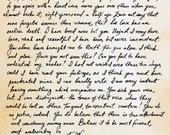 to you again with a heart even more your own than when you
almost broke it, eight years and a half ago. Dare not say that
man forgets sooner than woman, that his love has an
earlier death. I have loved none but you. Unjust I may have
been, weak and resentful I have been, but never inconstant.
You alone have brought me to Bath. For you alone I think,
and plan. Have you not seen this? Can you fail to have
understood my wishes? I had not waited even these ten days,
could I have read your feelings, as I think you must have
penetrated mine. I can hardly write. I am every instant
hearing something which overpowers me. You sink your voice,
but I can distinguish the tones of that voice when they
would be lost on others. Too good, too excellent creature! You do us
justice, indeed. You do believe that there is true attachment
and constancy among men. Believe it to be most fervent,
most undeviating in